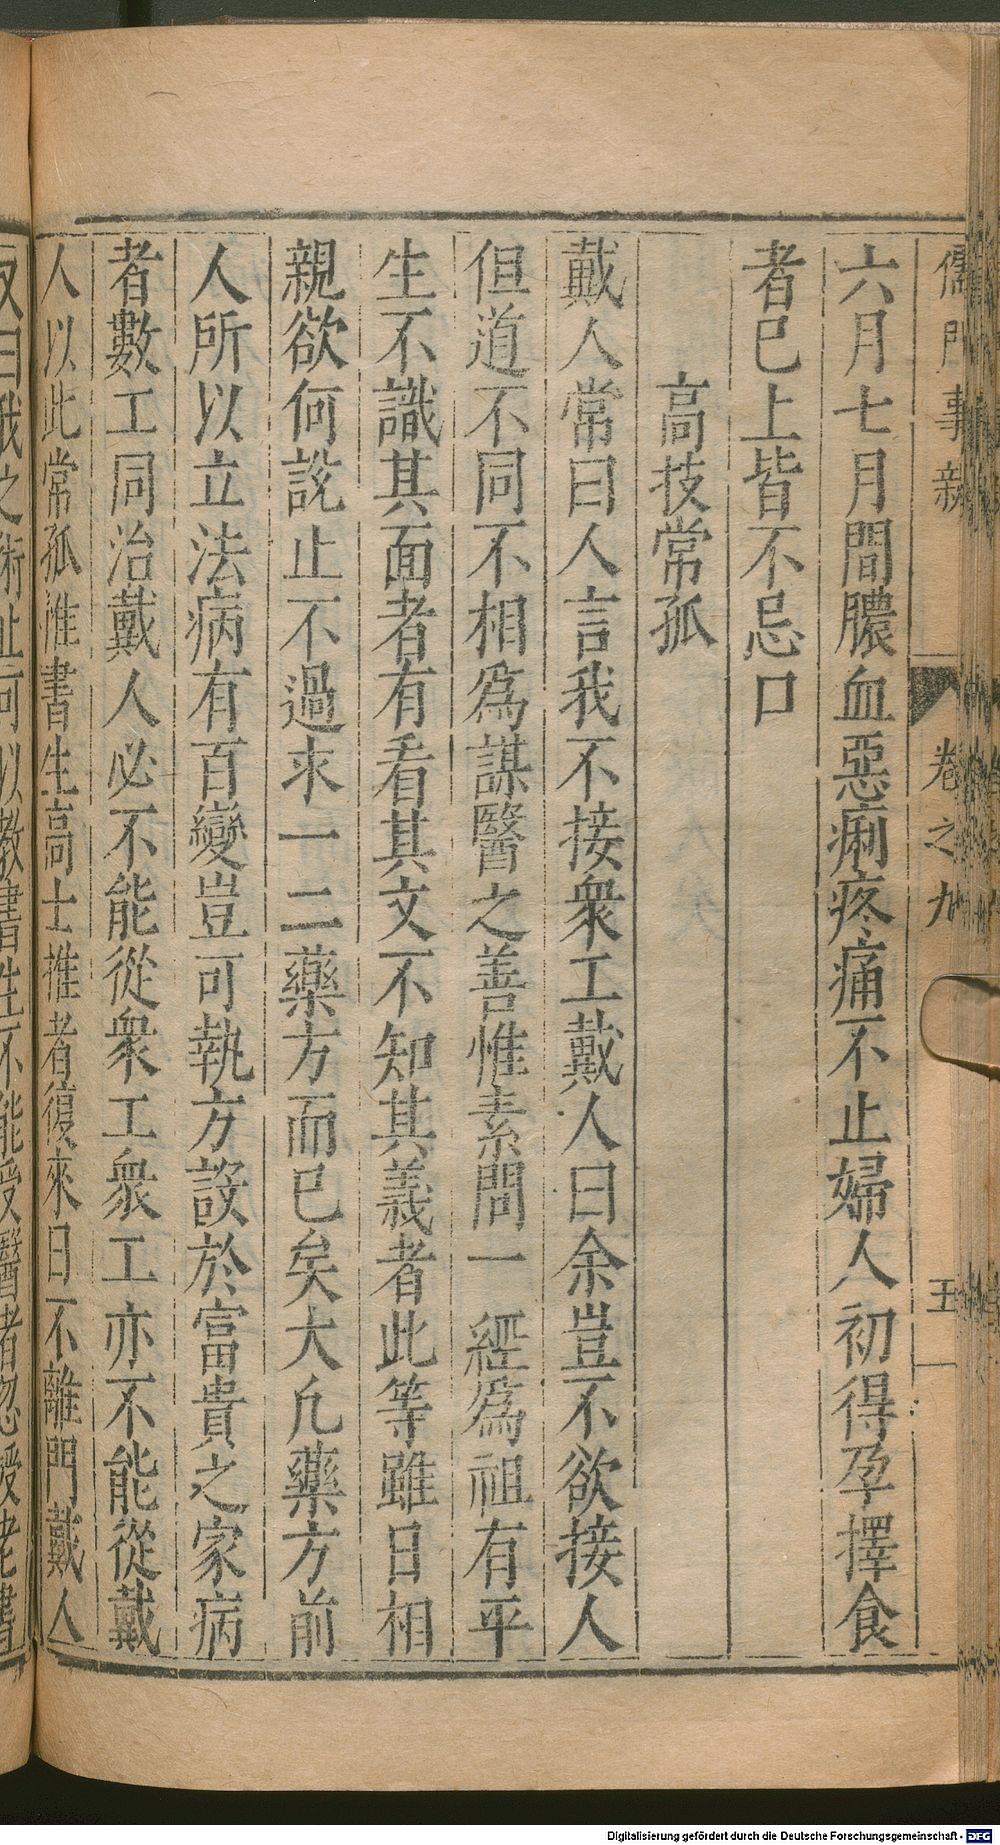 儒門事親 卷之九 五
六月七月間膿血惡痢疼痛不止婦人初得孕擇食
者已上皆不忌口
高技常孤
戴人常曰人言我不接衆工戴人曰余豈不欲接人
但道不同不相爲謀醫之善惟素問一經爲祖有平
生不識其面者有看其文不知其義者此等雖日相
親欲何說止不過求一二藥方而已矣大凡藥方前
人所以立法病有百變豈可執方設於富貴之家病
者數工同治戴人必不能從衆工衆工亦不能從戴
人以此常孤惟書生高士推者復來日不離門戴人
又曰我之術止可以教書生不能受醫者忽授老書
Digitalisierung gefördert durch die Deutsche Forschungsgemeinschaft - DFG